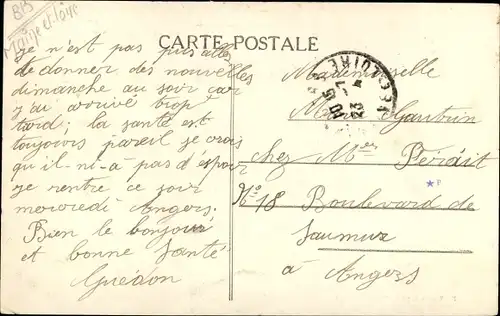 BB
Maine-et-Loire
CARTE POSTALE
je n'est pas pus aller
te donner des nouvelles
dimanche au soir car
j'ai arrivé trop
tard; la santé est
toujours pareil je crois
qu'il ni-a pas d'espoir
je rentre ce jour
mercredi Angers.
Bien le bonjour
et bonne santé
Guédon
Mademoiselle
Marie Gautrin
chez Mme
No 18 Boulevard de
Saumur
à Angers
LOIRE
23
P